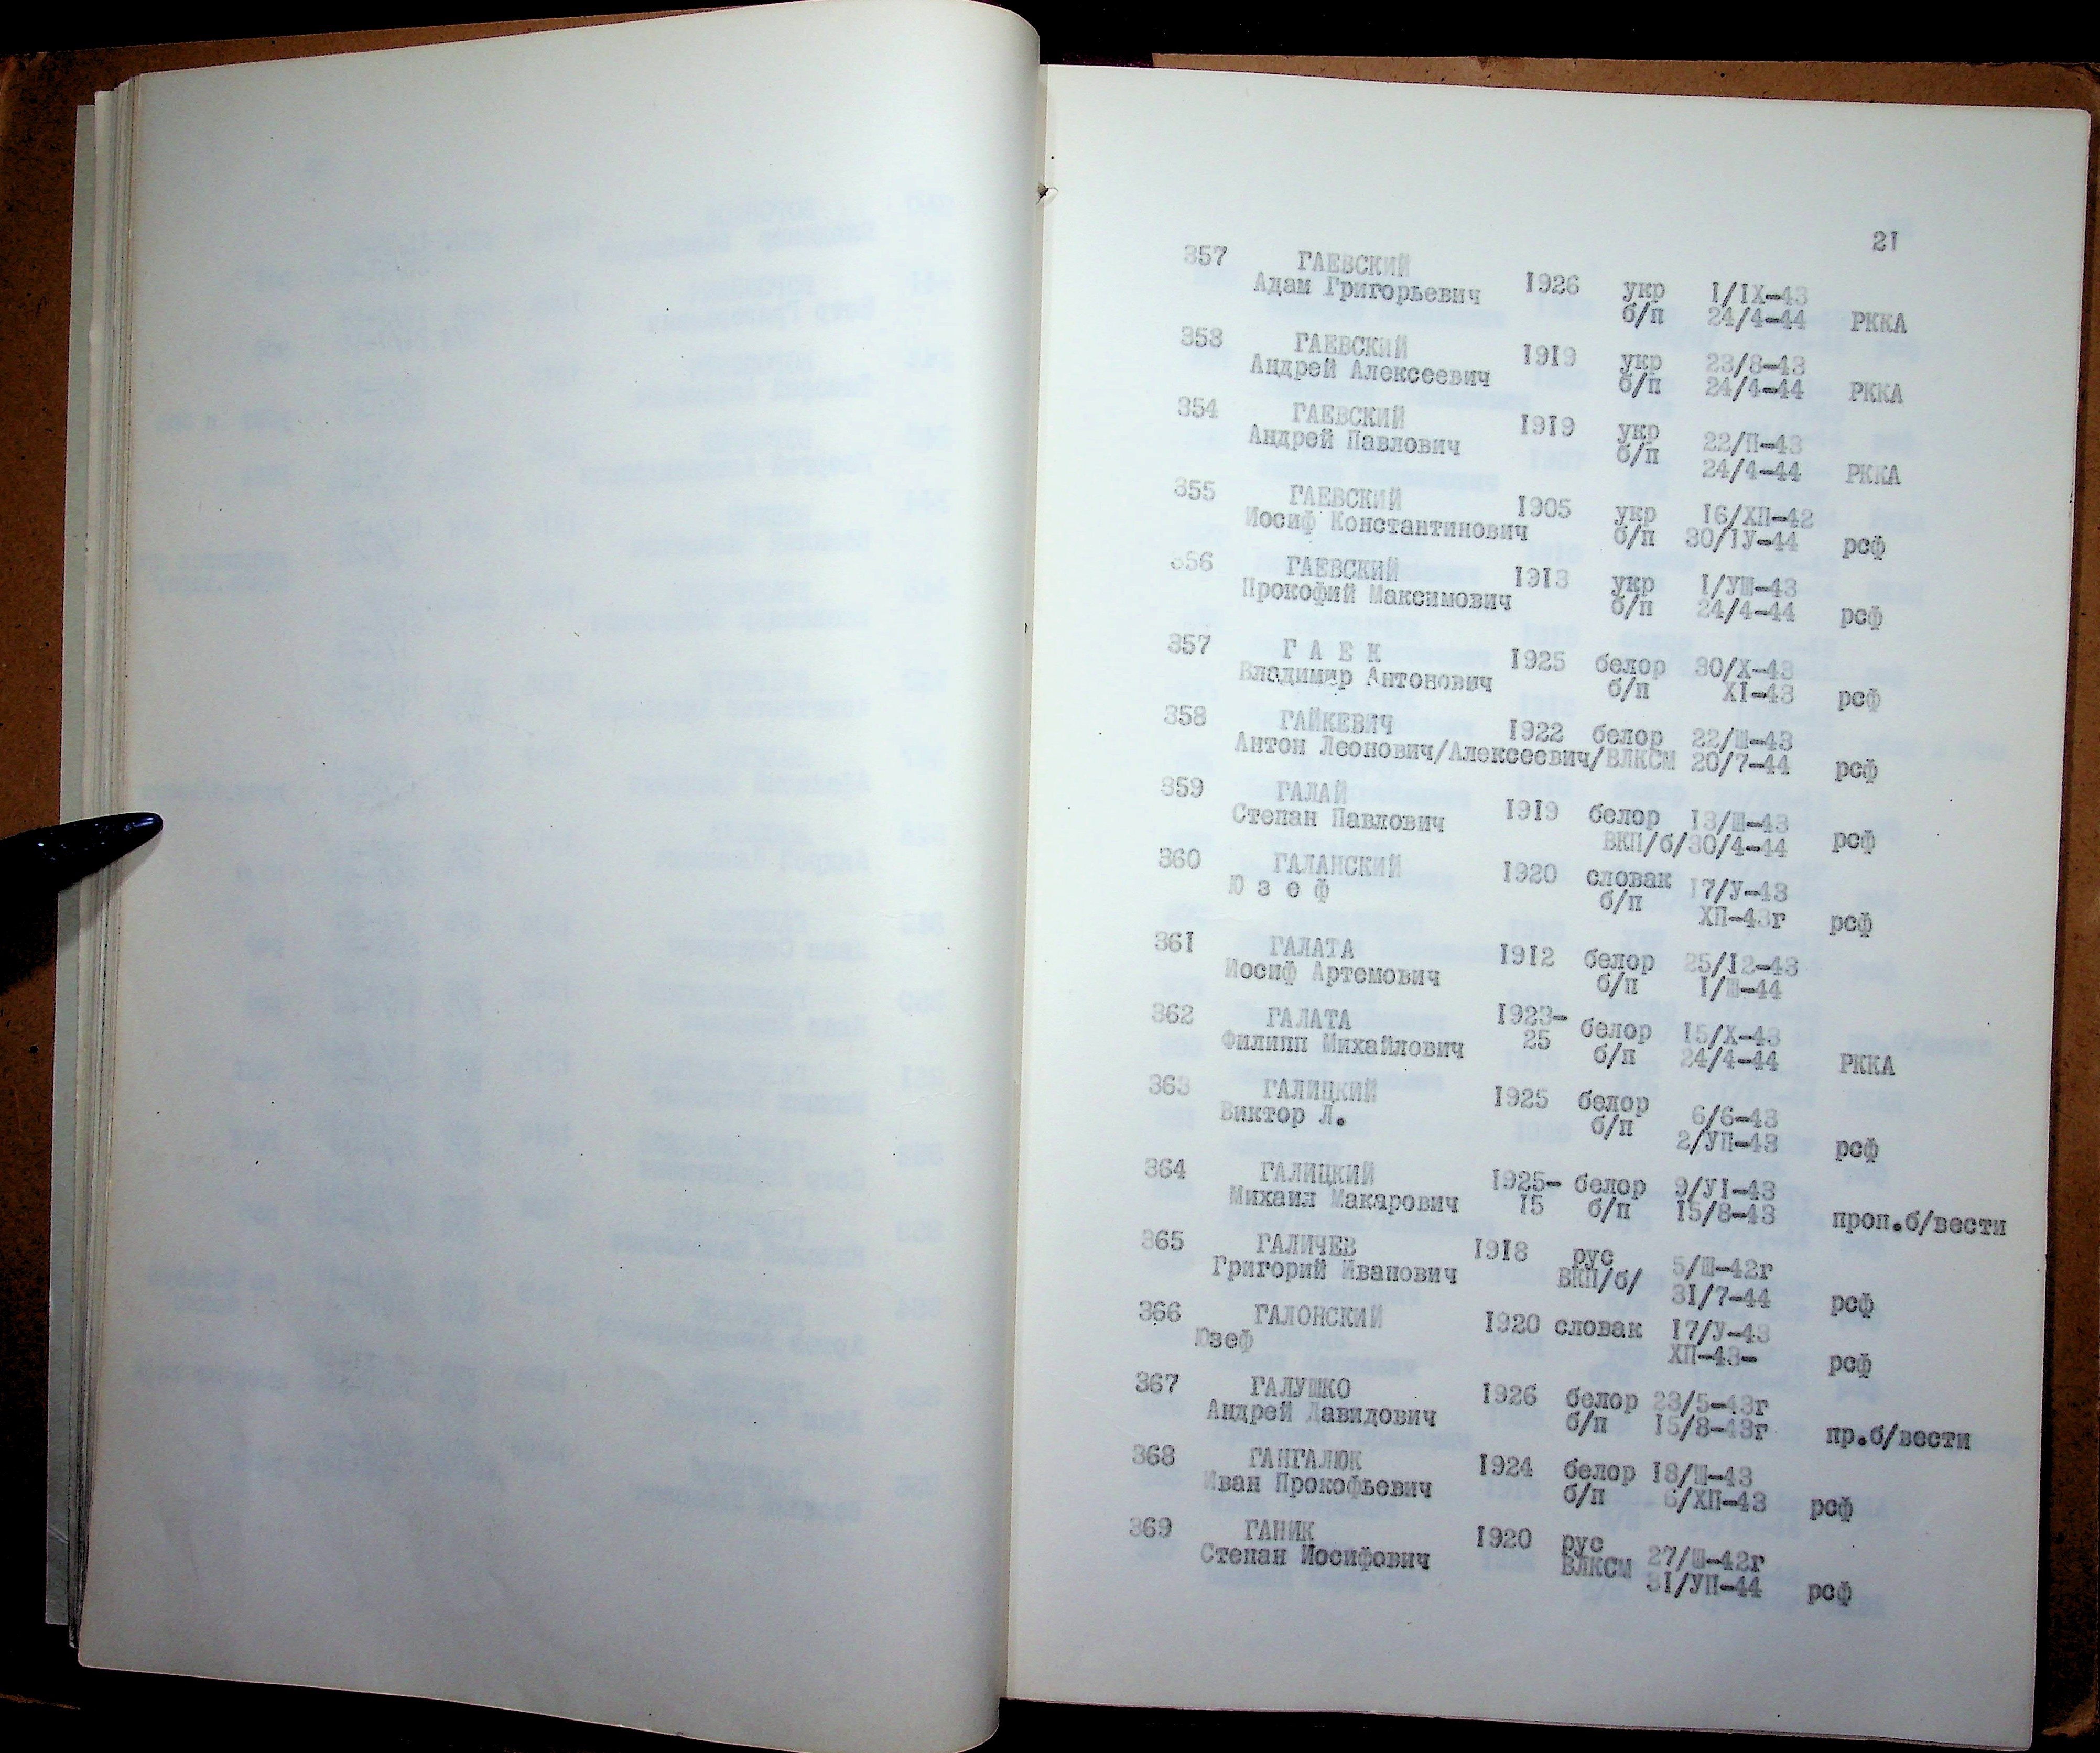 21
357 ГАЕВСКИЙ 1926 укр I/IX-43
Адам Григорьевич б/п 24/4-44 РККА
358 ГАЕВСКИЙ 1919 укр 23/8-43
Андрей Алексеевич б/п 24/4-44 РККА
354 ГАЕВСКИЙ 1919 укр 22/П-43
Андрей Павлович б/п 24/4-44 РККА
355 ГАЕВСКИЙ 1905 укр 16/ХП-42
Иосиф Константинович б/п 30/IУ-44 рсф
356 ГАЕВСКИЙ 1913 укр I/УШ-43
Прокофий Максимович б/п 24/4-44 рсф
357 Г А Е К 1925 белор 30/Х-43
Владимир Антонович б/п XI-43 рсф
358 ГАЙКЕВИЧ 1922 белор 22/Ш-43
Антон Леонович/Алексеевич/ВЛКСМ 20/7-44 рсф
359 ГАЛАЙ 1919 белор 13/Ш-43
Степан Павлович ВКП/б/30/4-44 рсф
360 ГАЛАНСКИЙ 1920 словак 17/У-43
Ю з е ф б/п ХП-43г рсф
361 ГАЛАТА 1912 белор 25/12-43
Иосиф Артемович б/п I/Ш-44
362 ГАЛАТА 1923- белор 15/Х-43
Филипп Михайлович 25 б/п 24/4-44 РККА
363 ГАЛИЦКИЙ 1925 белор 6/6-43
Виктор Л. б/п 2/УП-43 рсф
364 ГАЛИЦКИЙ 1925- белор 9/УI-43
Михаил Макарович 15 б/п 15/8-43 проп.б/вести
365 ГАЛИЧЕВ 1918 рус 5/Ш-42г
Григорий Иванович ВКП/б/ 31/7-44 рсф
366 ГАЛОНСКИЙ 1920 словак 17/У-43
Юзеф ХП-43- рсф
367 ГАЛУШКО 1926 белор 23/5-43г
Андрей Давидович б/п 15/8-43г пр.б/вести
368 ГАНГАЛЮК 1924 белор 18/Ш-43
Иван Прокофьевич б/п 6/ХП-43 рсф
369 ГАНИК 1920 рус 27/Ш-42г
Степан Иосифович ВЛКСМ 31/УП-44 рсф